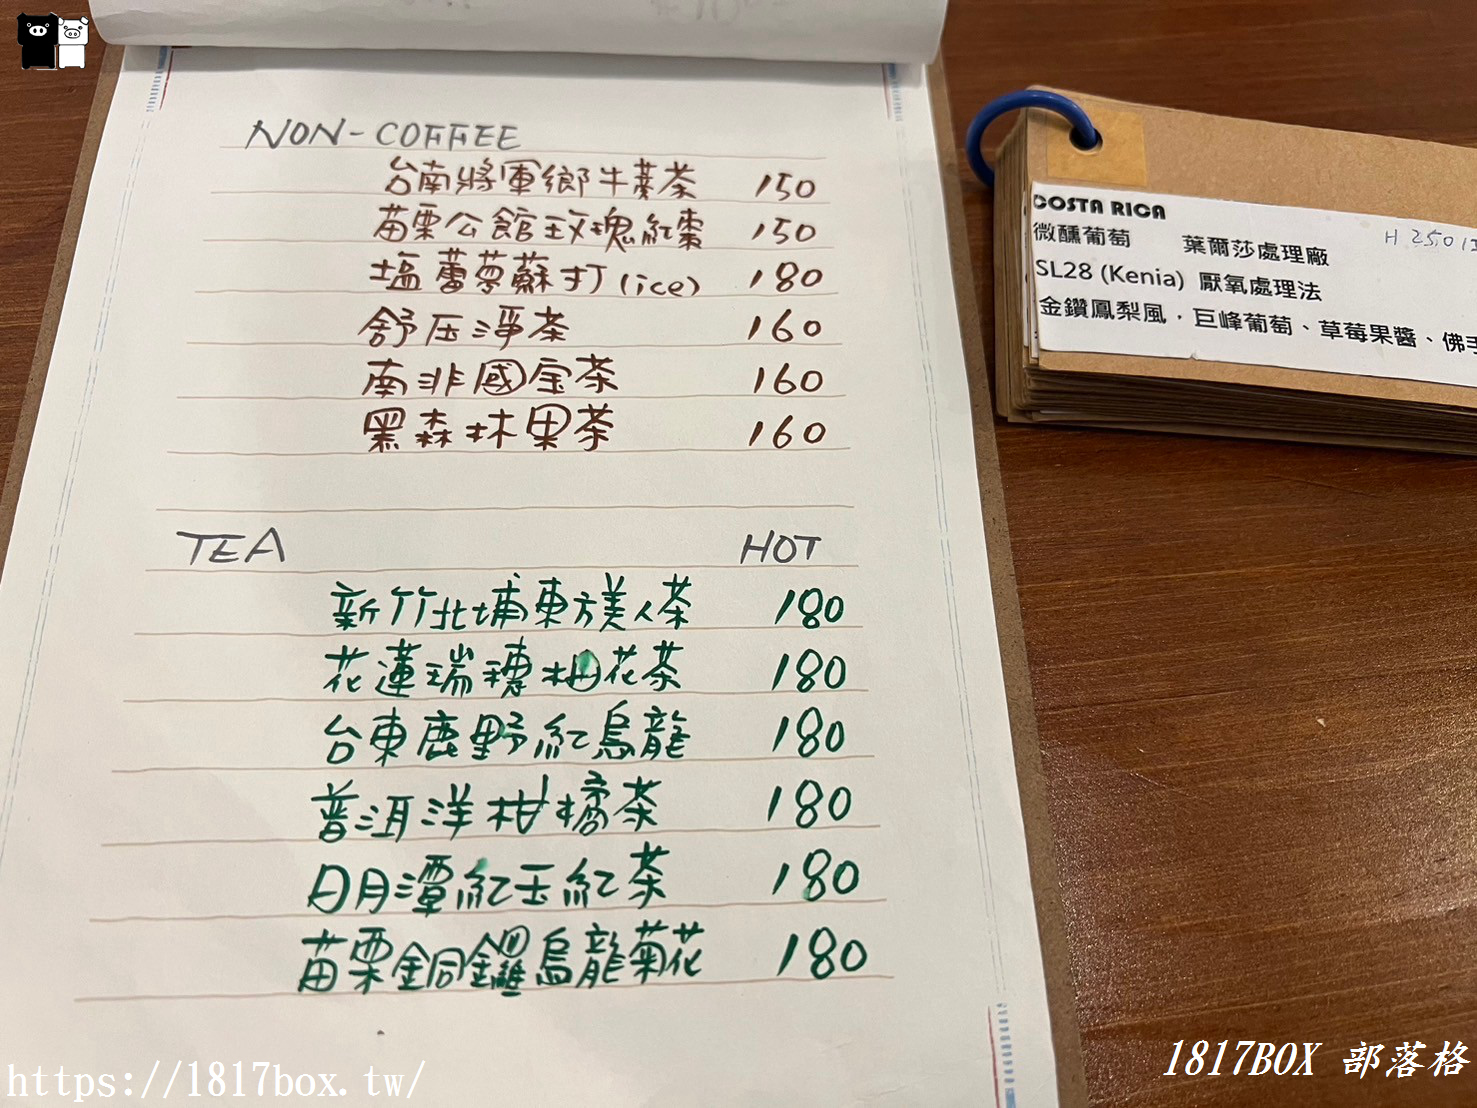 NON-COFFEE
台南將軍鄉牛蒡茶 150
苗栗公館玫瑰紅棗 150
塩薔夢蘇打(ice) 180
舒压淨茶 160
南非國宝茶 160
黑森林果茶 160
TEA HOT
新竹北埔東方美人茶 180
花蓮瑞穗柚花茶 180
台東鹿野紅烏龍 180
普洱洋柑橘茶 180
日月潭紅玉紅茶 180
苗栗銅鑼烏龍菊花 180
COSTA RICA
微醺葡萄 葉爾莎處理廠 H 250
SL28 (Kenia) 厭氧處理法
金鑽鳳梨風，巨峰葡萄、草莓果醬、佛手
https://1817box.tw/
1817BOX 部落格